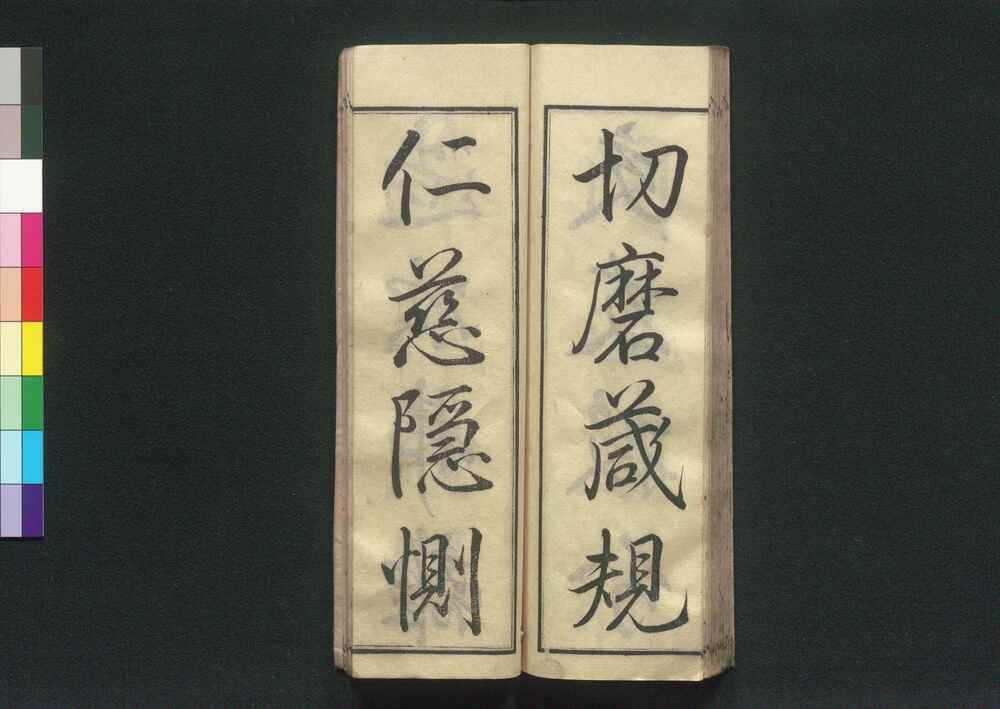 切磨葴規
仁慈隠惻